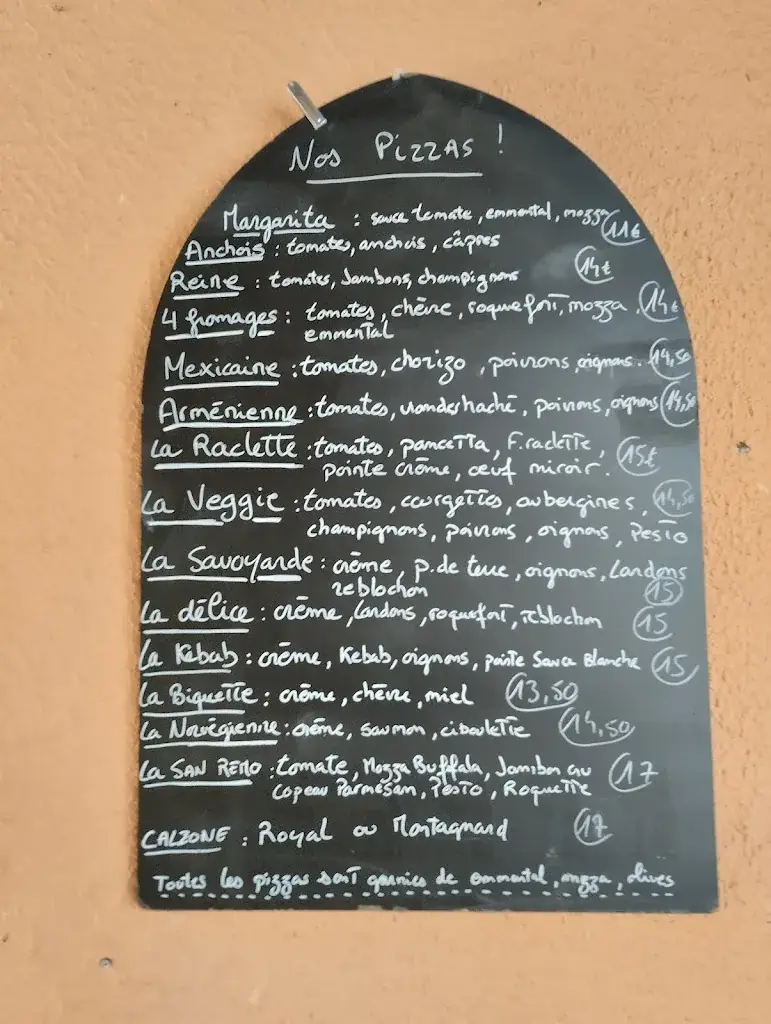 Nos Pizzas !
Margarita : sauce tomate, emmental, mozza 11€
Anchois : tomates, anchois, câpres
Reine : tomates, Jambons, champignons 14€
4 fromages : tomates, chèvre, roquefort, mozza, 14€
emmental
Mexicaine : tomates, chorizo, poivrons, oignons. 14,50
Arménienne : tomates, viande haché, poivrons, oignons 14,50
La Raclette : tomates, pancetta, F. raclette, 15€
pointe crème, oeuf miroir.
La Veggie : tomates, courgettes, aubergines, 14,50
champignons, poivrons, oignons, Pesto
La Savoyarde : crème, p. de terre, oignons, Lardons
reblochon 15
La délice : crème, Lardons, roquefort, reblochon 15
La Kebab : crème, Kebab, oignons, pointe Sauce Blanche 15
La Biquette : crème, chèvre, miel 13,50
La Norvégienne : crème, saumon, ciboulette 14,50
La SAN REMO : tomate, Mozza Buffala, Jambon cru 17
Copeau Parmesan, Pesto, Roquette
CALZONE : Royal ou Montagnard 17
Toutes les pizzas sont garnies de emmental, mozza, olives